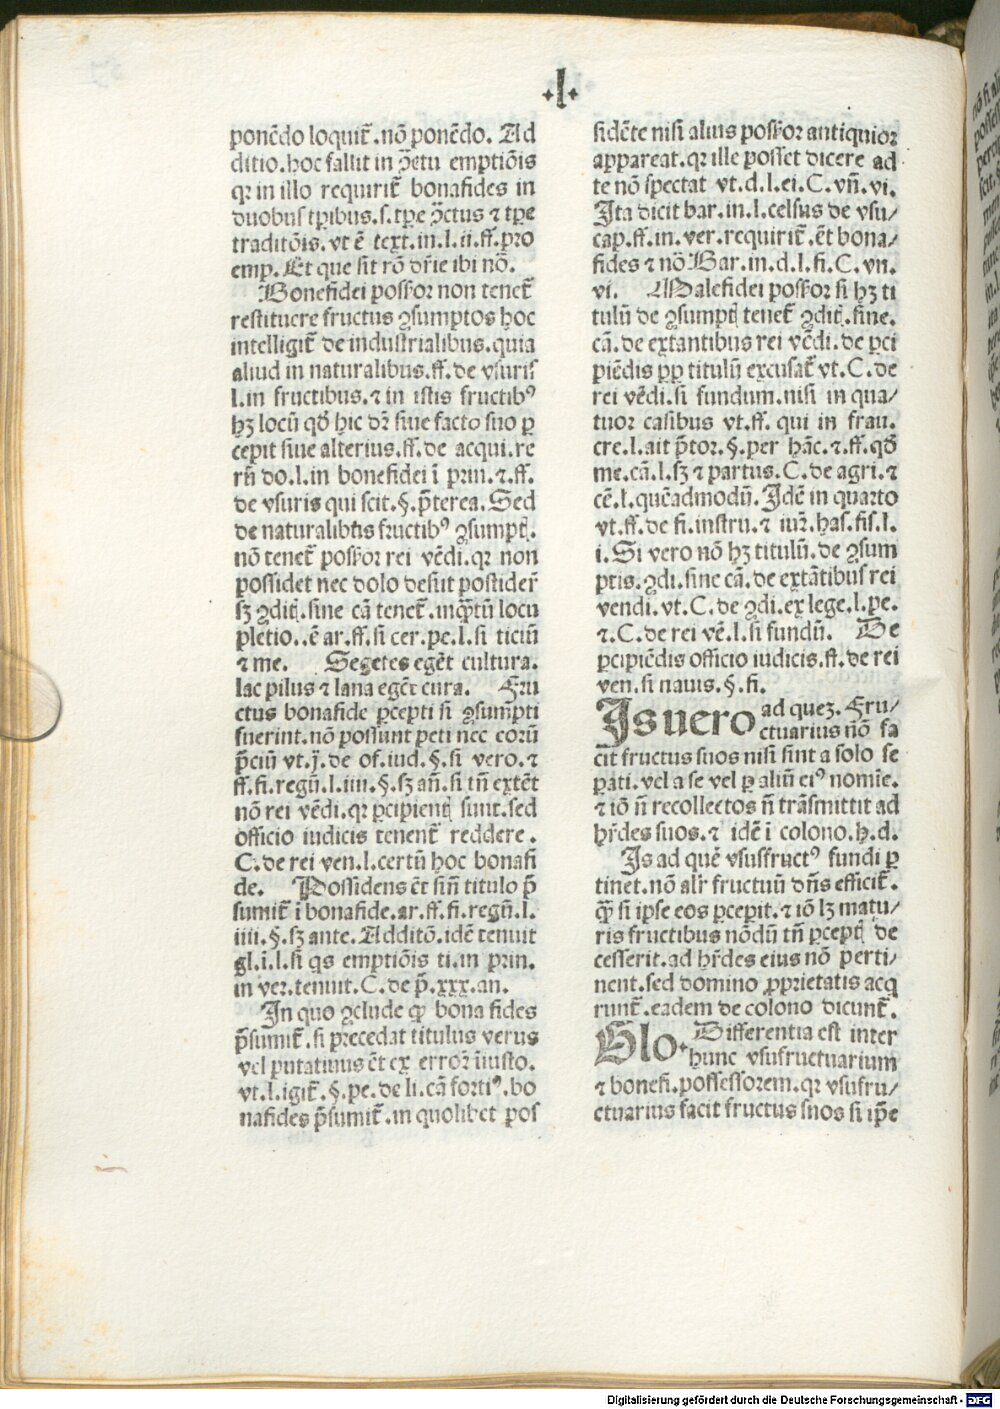 ·I·
ponēdo loquit̄.nō ponēdo. Ad
ditio.hoc fallit in ꝯētu emptiōis
qꝛ in illo requirit̄ bonafides in
duobus tꝑibus.s.tꝑe ꝯctus ⁊ tꝑe
traditōis.vt ē text.in.l.ii.ff.pro
emp.Et que sit rō dr̄ie ibi nō.
Bonefidei possꝛor non tenet̄
restituere fructus ꝯsumptos hoc
intelligit̄ de industrialibus.quia
aliud in naturalibus.ff.de vsuris
l.in fructibus.⁊ in istis fructibꝰ
hꝫ locū qđ hic dꝛ̄ siue facto suo ꝑ
cepit siue alterius.ff.de acqui.re
rū do.l.in bonefidei ī prin.⁊.ff.
de vsuris qui scit.§.p̄terea.Sed
de naturalibus fructibꝰ ꝯsumptꝭ.
nō tenet̄ possꝛor rei vēdi.qꝛ non
possidet nec dolo desiit possider̄
sꝫ ꝯditꝭ.sine cā tenet̄.inq̄ꝫtū locu
pletio..ē ar.ff.si cer.pe.l.si ticiū
⁊ me. Segetes egēt cultura.
lac pilus ⁊ lana egēt cura. Fru
ctus bonafide ꝑcepti si ꝯsumpti
fuerint.nō possunt peti nec eorū
p̄ciū vt.j̄.de of.iud.§.si vero.⁊
ff.fi.regū.l.iiii.§.sꝫ an̄.si tn̄ extēt
nō rei vēdi.qꝛ ꝑcipientꝭ sunt.sed
officio iudicis tenent̄ reddere.
C.de rei ven.l.certū hoc bonafi
de. Possidens ēt sin̄ titulo p̄
sumit̄ ī bonafide.ar.ff.fi.regū.l.
iiii.§.sꝫ ante.Additō.idē tenuit
gl.ī.l.si qs emptiōis ti.in prin.
in ver.tenuit.C.de p̄.xxx.an.
In quo ꝯclude ꝙ bona fides
p̄sumit̄.si precedat titulus verus
vel putatiuus ēt ex error̄ iiusto.
vt.l.igit̄.§.pe.de li.cā fortiꝰ.bo
nafides p̄sumit̄.in quolibet pos
sidēte nisi alius possꝛor antiquior
appareat.qꝛ ille posset dicere ad
te nō spectat vt.d.l.ei.C.vn̄.vi.
Ita dicit bar.in.l.celsus de vsu/
cap.ff.in.ver.requirit̄.ēt bona/
fides ⁊ nō Bar.in.d.l.fi.C.vn.
vi. Malefidei possꝛor si hꝫ ti
tulū de ꝯsumptꝭ tenet̄ ꝯditꝭ.sine.
cā.de extantibus rei vēdi.de ꝑci
piēdis ꝓp titulū excusat̄ vt.C.de
rei vēdi.si fundum.nisi in qua/
tuor casibus vt.ff. qui in frau.
cre.l.ait p̄tor.§.per hāc.⁊.ff.qđ
me.cā.l.sꝫ ⁊ partus.C.de agri.⁊
cē.l.quēadmodū.Idē in quarto
vt.ff.de fi.instru.⁊ iuꝛ̄.has.fis.l.
i.Si vero nō hꝫ titulū.de ꝯsum
ptis.ꝯdi.sine cā.de extātibus rei
vendi.vt.C.de ꝯdi.ex lege.l.pe.
⁊.C.de rei vē.l.si fundū. De
ꝑcipiēdis officio iudicis.ff.de rei
ven.si nauis.§.fi.
Is uero ad queꝫ.Fru/
ctuarius nō fa
cit fructus suos nisi sint a solo se
ꝑati.vel a se vel ꝑ aliū eiꝰ nomīe.
⁊ iō n̄ recollectos n̄ trāsmittit ad
hr̄des suos.⁊ idē ī colono.h.d.
Is ad quē vsusfructꝰ fundi ꝑ
tinet.nō alr̄ fructuū dn̄s efficit̄.
ꝙ si ipse eos ꝑcepit.⁊ iō lꝫ matu/
ris fructibus nōdū tn̄ ꝑceptꝭ de
cesserit.ad hr̄des eius nō perti/
nent.sed domino ꝓprietatis acq
runt̄.eadem de colono dicunt̄.
Glo. Differentia est inter
hunc vsufructuarium
⁊ bonefi.possessorem.qꝛ vsufru/
ctuarius facit fructus suos si ip̄e
Digitalisierung gefördert durch die Deutsche Forschungsgemeinschaft - DFG